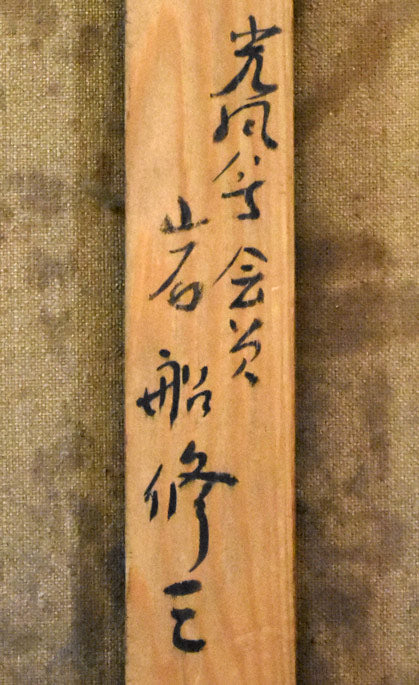 光風会会員
岩船修三